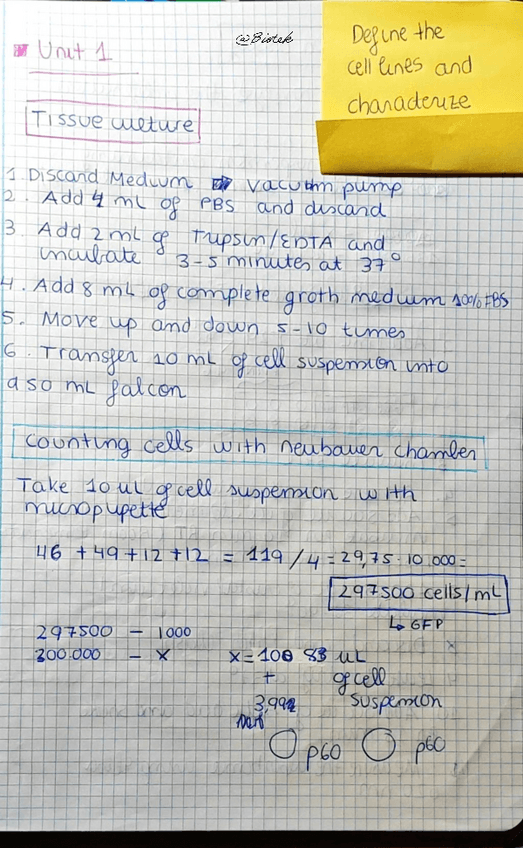 Unit 1
@Biotek
Define the
cell lines and
characterize
Tissue culture
1. Discard Medium → vacuum pump
2. Add 4 mL of PBS and discard
3 Add 2 mL of Trypsin/EDTA and
incubate 3-5 minutes at 37°
4. Add 8 mL of complete groth medium 10% FBS
5. Move up and down 5-10 times
6. Transfer 10 mL of cell suspension into
a 50 mL falcon
Counting cells with neubauer chamber
Take 10 uL of cell suspension with
micropipette
46 + 49 + 12 + 12 = 119 / 4 = 29,75 · 10.000 =
297500 cells/mL
↳ GFP
297500 - 1000
300.000 - x x = 1008 83 uL
+ of cell
3,992 suspension
p60 p60